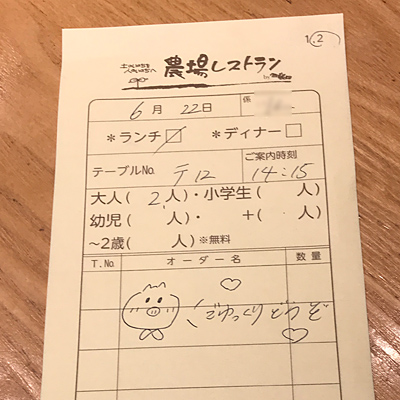 1.2
土にいのちを
人にいのちを
農場レストラン
6月 22日 係
*ランチ *ディナー
テーブルNo. テ12 ご案内時刻 14:15
大人( 2人)・小学生( 人)
幼児( 人)・ +( 人)
~2歳( 人)※無料
T.No. オーダー名 数量
ごゆっくりどうぞ